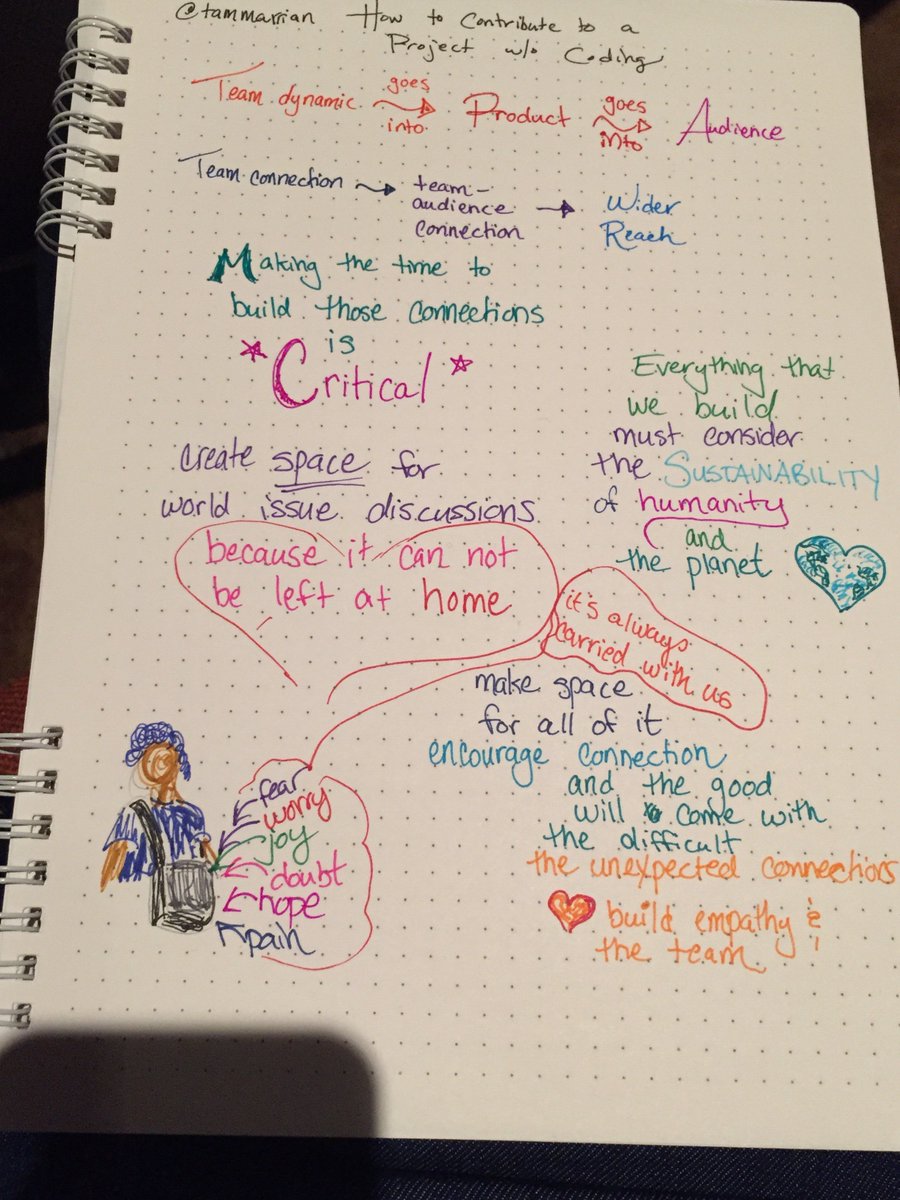 @tammarrian How to Contribute to a
Project w/o Coding
Team dynamic goes into Product goes into Audience
Team connection → team-
audience
connection → Wider
Reach
Making the time to
build those connections
is
*Critical*
Everything that
we build
must consider
the SUSTAINABILITY
of humanity
and
the planet
create space for
world issue discussions
because it can not
be left at home
it's always
carried with us
make space
for all of it
encourage connection
and the good
will come with
the difficult
the unexpected connections
build empathy &
the team
fear
worry
joy
doubt
hope
pain